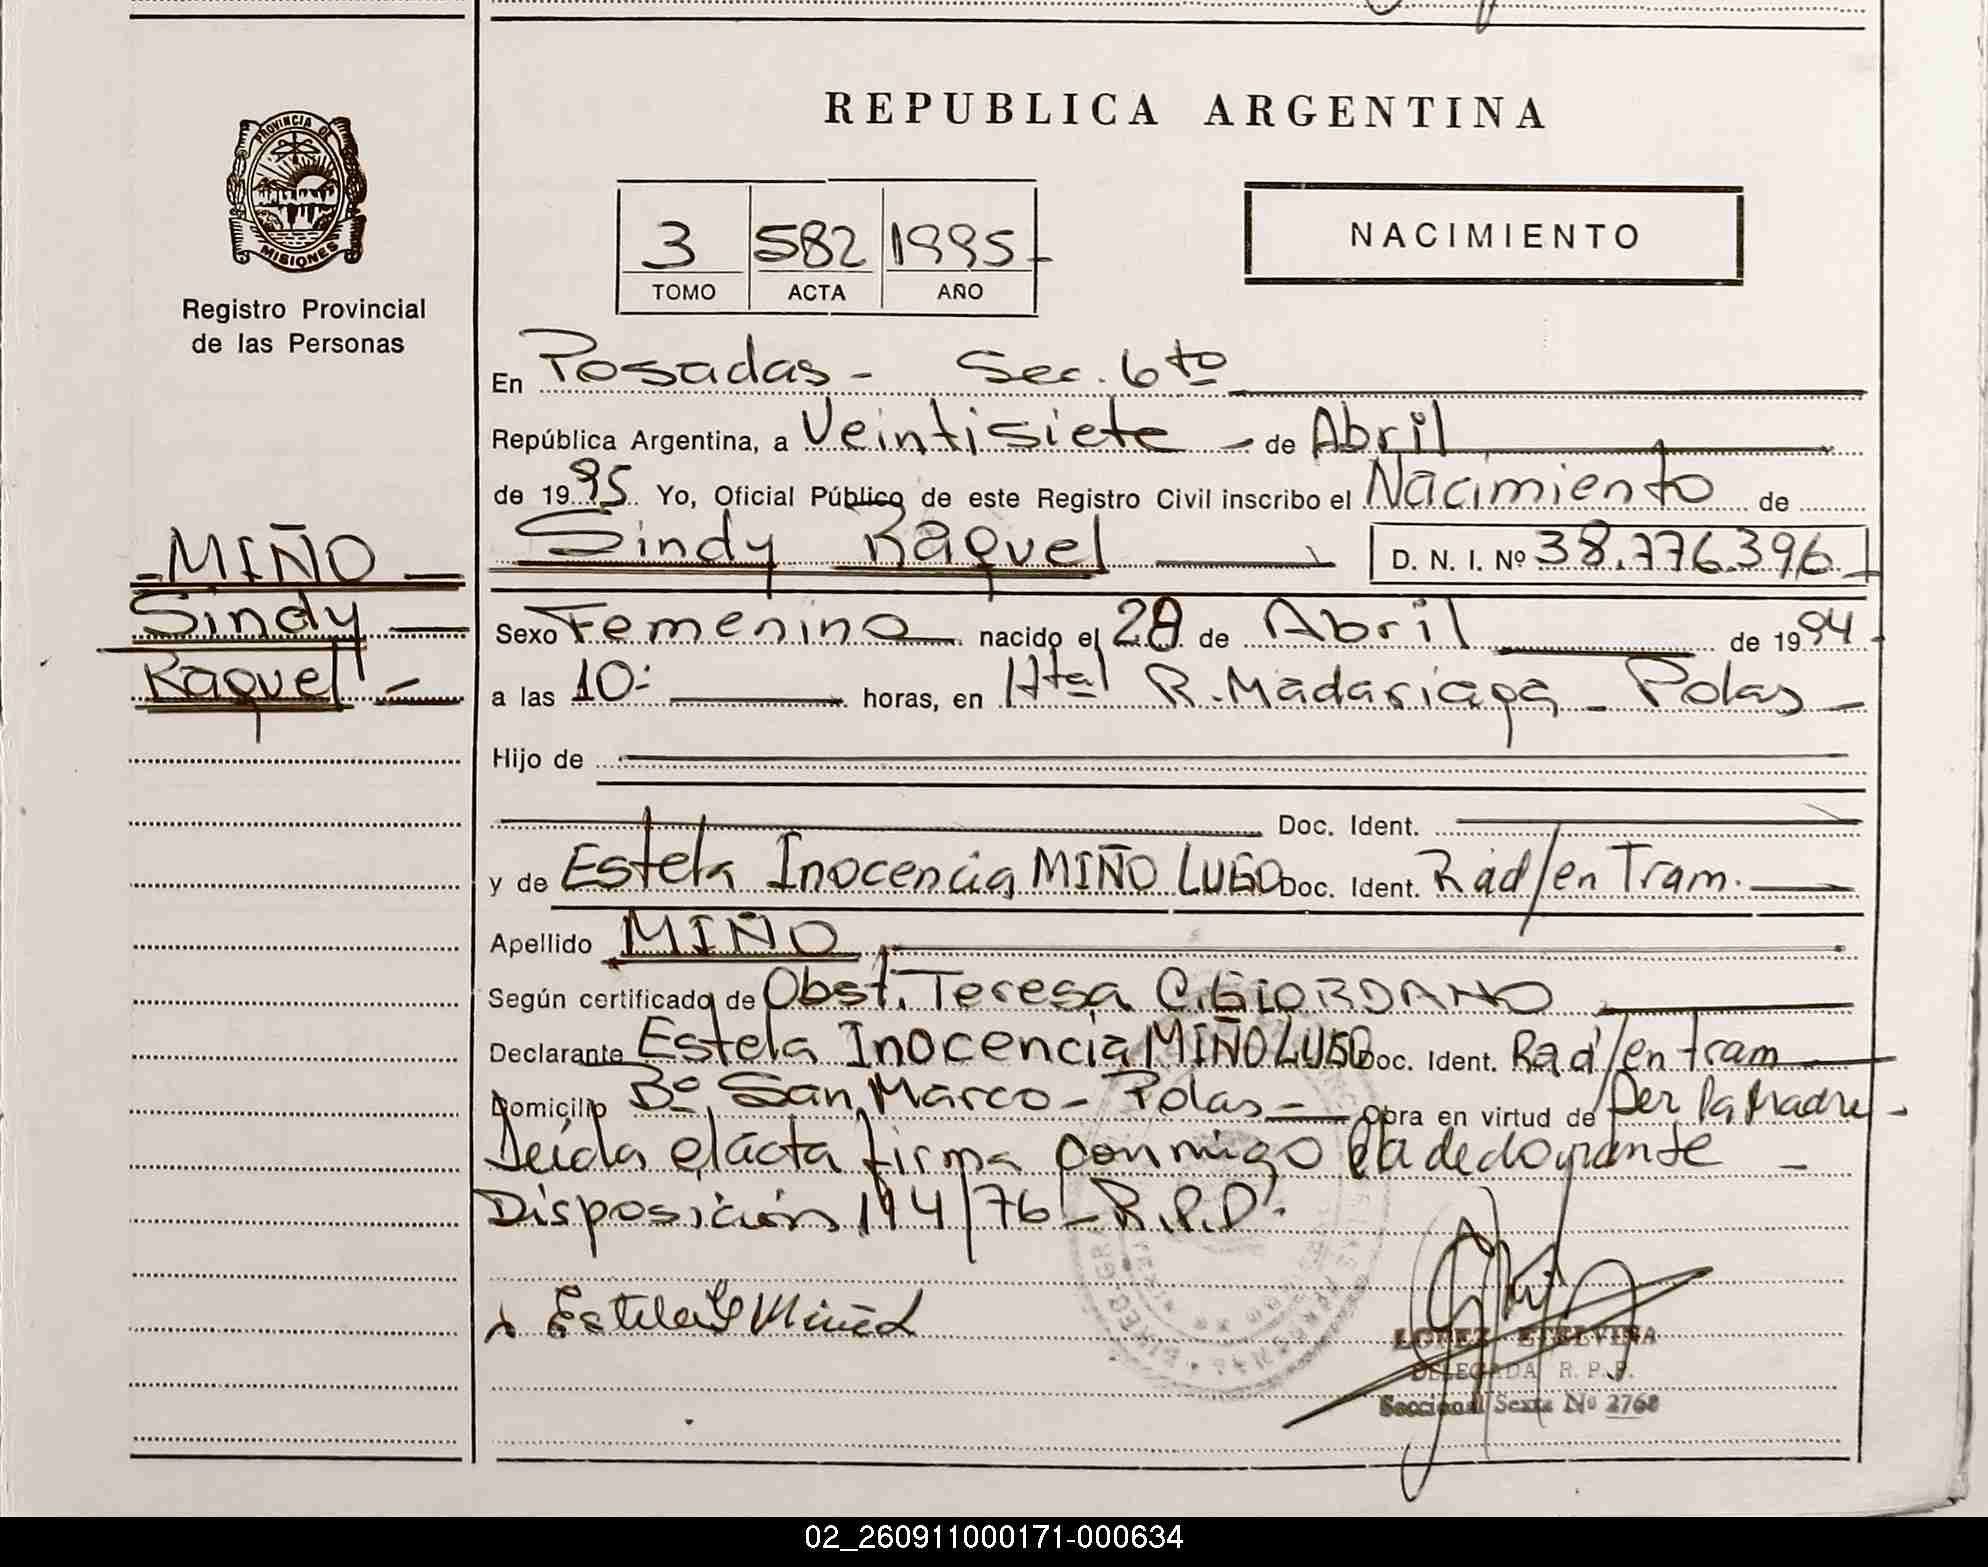 REPUBLICA ARGENTINA
PROVINCIA DE
MISIONES
Registro Provincial
de las Personas
3 582 1995
TOMO ACTA AÑO
NACIMIENTO
En Posadas - Sec. 6to
República Argentina, a Veintisiete - de Abril
de 1995 Yo, Oficial Público de este Registro Civil inscribo el Nacimiento de
Sindy Raquel D. N. I. Nº 38.776.396
MIÑO
Sindy
Raquel
Sexo Femenino nacido el 28 de Abril de 1994
a las 10:- horas, en Htal R. Madariaga - Pdas -
Hijo de
Doc. Ident.
y de Estela Inocencia MIÑO LUGO Doc. Ident. Rad/en Tram.
Apellido MIÑO
Según certificado de Obst. Teresa C. GIORDANO
Declarante Estela Inocencia MIÑO LUGO Doc. Ident. Rad/en tram
Domicilio Bº San Marco - Pdas - Obra en virtud de Ser la Madre -
Leída el acta firma conmigo la declarante -
Disposición 114/76 - R.P.P.
x Estela
LOPEZ ETELVINA
DELEGADA R. P. P.
Seccional Sexta Nº 2768
02_260911000171-000634